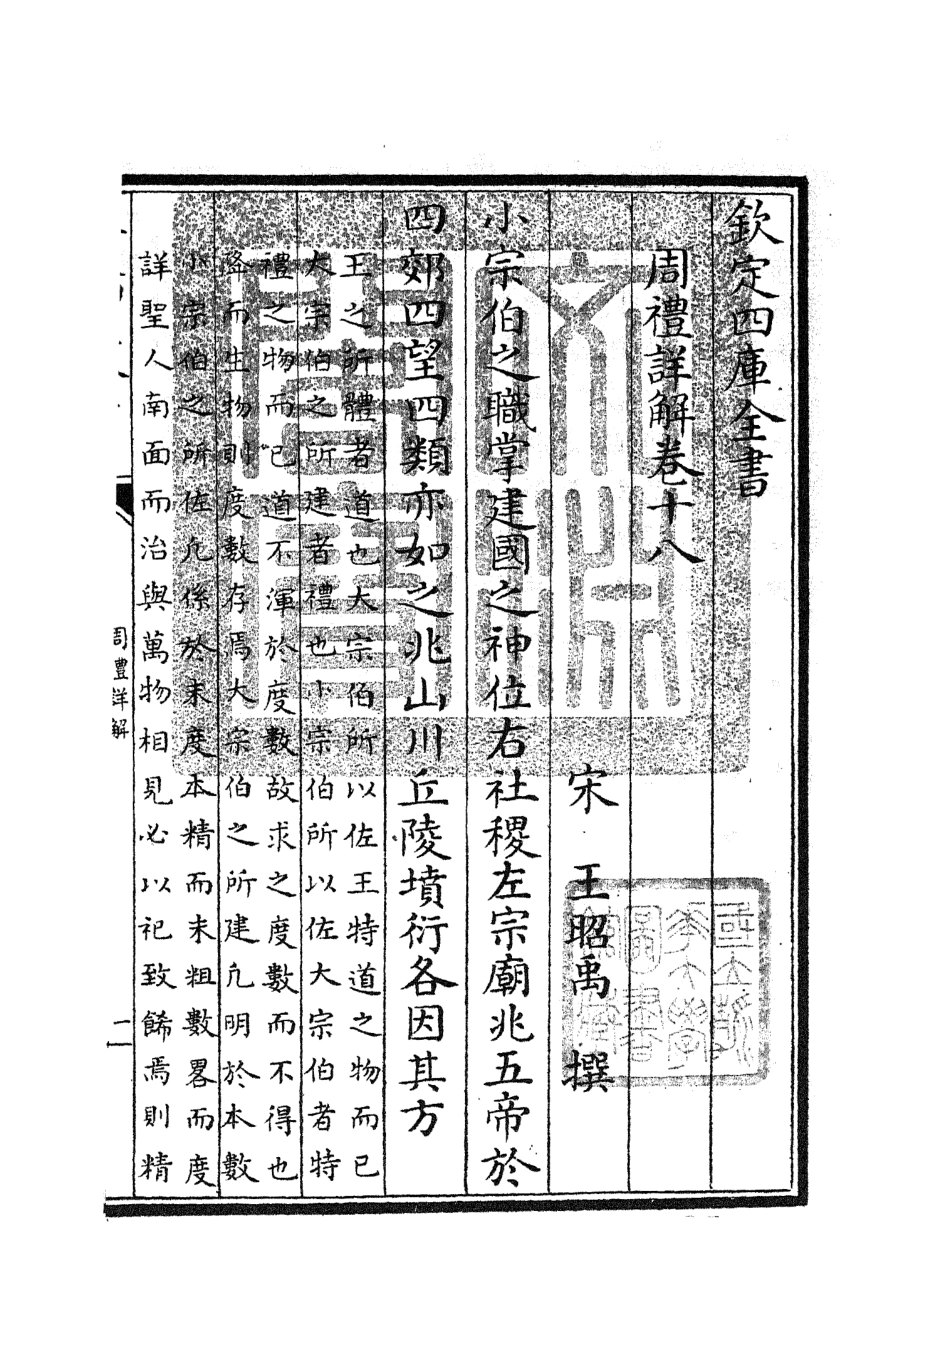 欽定四庫全書
周禮詳解卷十八
宋 王昭禹 撰
小宗伯之職掌建國之神位右社稷左宗廟兆五帝於
四郊四望四類亦如之兆山川丘陵墳衍各因其方
王之所體者道也大宗伯所以佐王特道之物而已
大宗伯之所建者禮也小宗伯所以佐大宗伯者特
禮之物而已道不渾於度數故求之度數而不得也
降而生物則度數存焉大宗伯之所建凡明於本數
小宗伯之所佐凡係於末度本精而末粗數畧而度
詳聖人南面而治與萬物相見必以祀致餙焉則精
周禮詳解
一